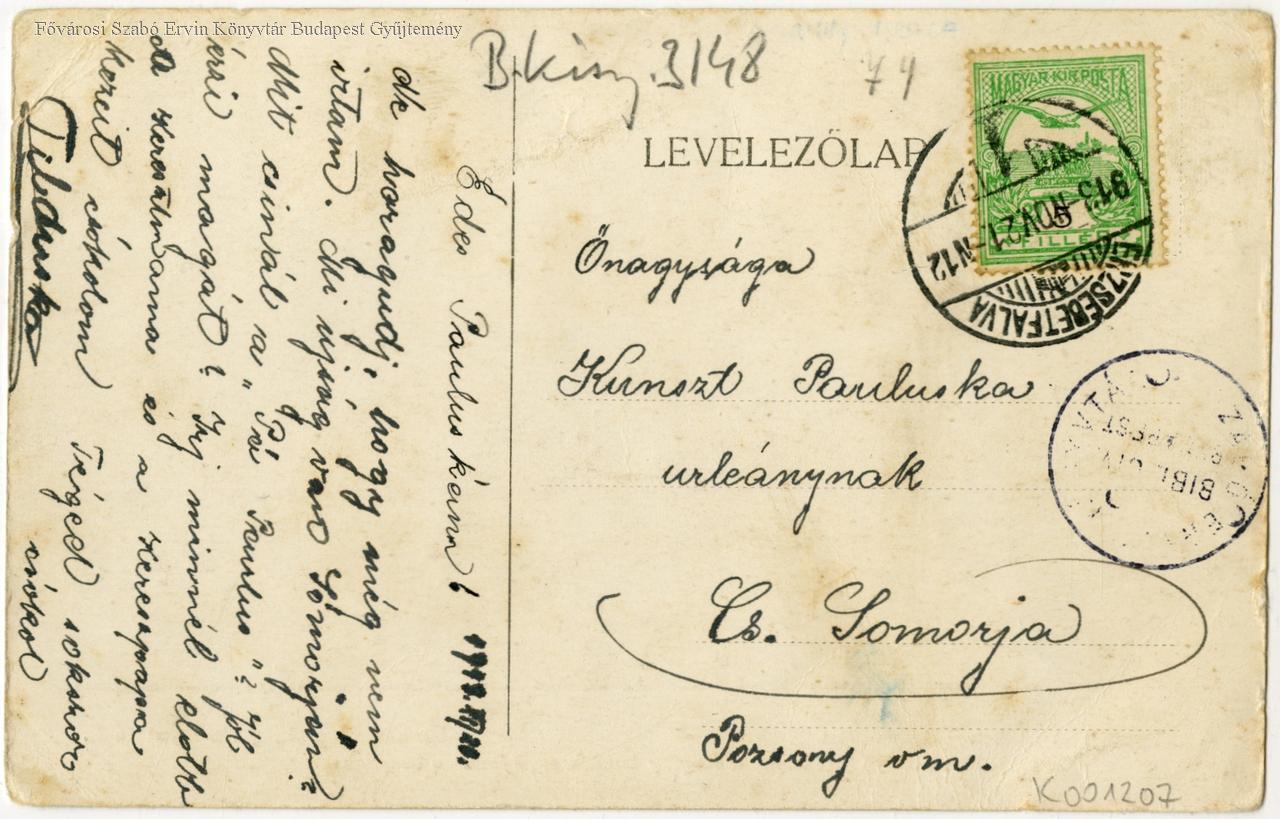 Fővárosi Szabó Ervin Könyvtár Budapest Gyűjtemény
B.kisz. 3148
74
LEVELEZŐLAP
MAGYAR·KIR·POSTA
5
FILLÉR
913 NOV 21 N12
ERZSÉBETFALVA
Önagysága
Kunszt Pauluska
urleánynak
Cs. Somorja
Pozsony vm.
K001207
Édes Pauluskám!
Ne haragudj, hogy még nem
irtam. Mi ujság van Somorjan?
Mit csinál a „Pá Paulus"? Jól
érzi magát? Irj minnél elobb
A Keresztmama és a Keresztpapa
kezeit csókolom Téged sokszor
csókol
Teduska